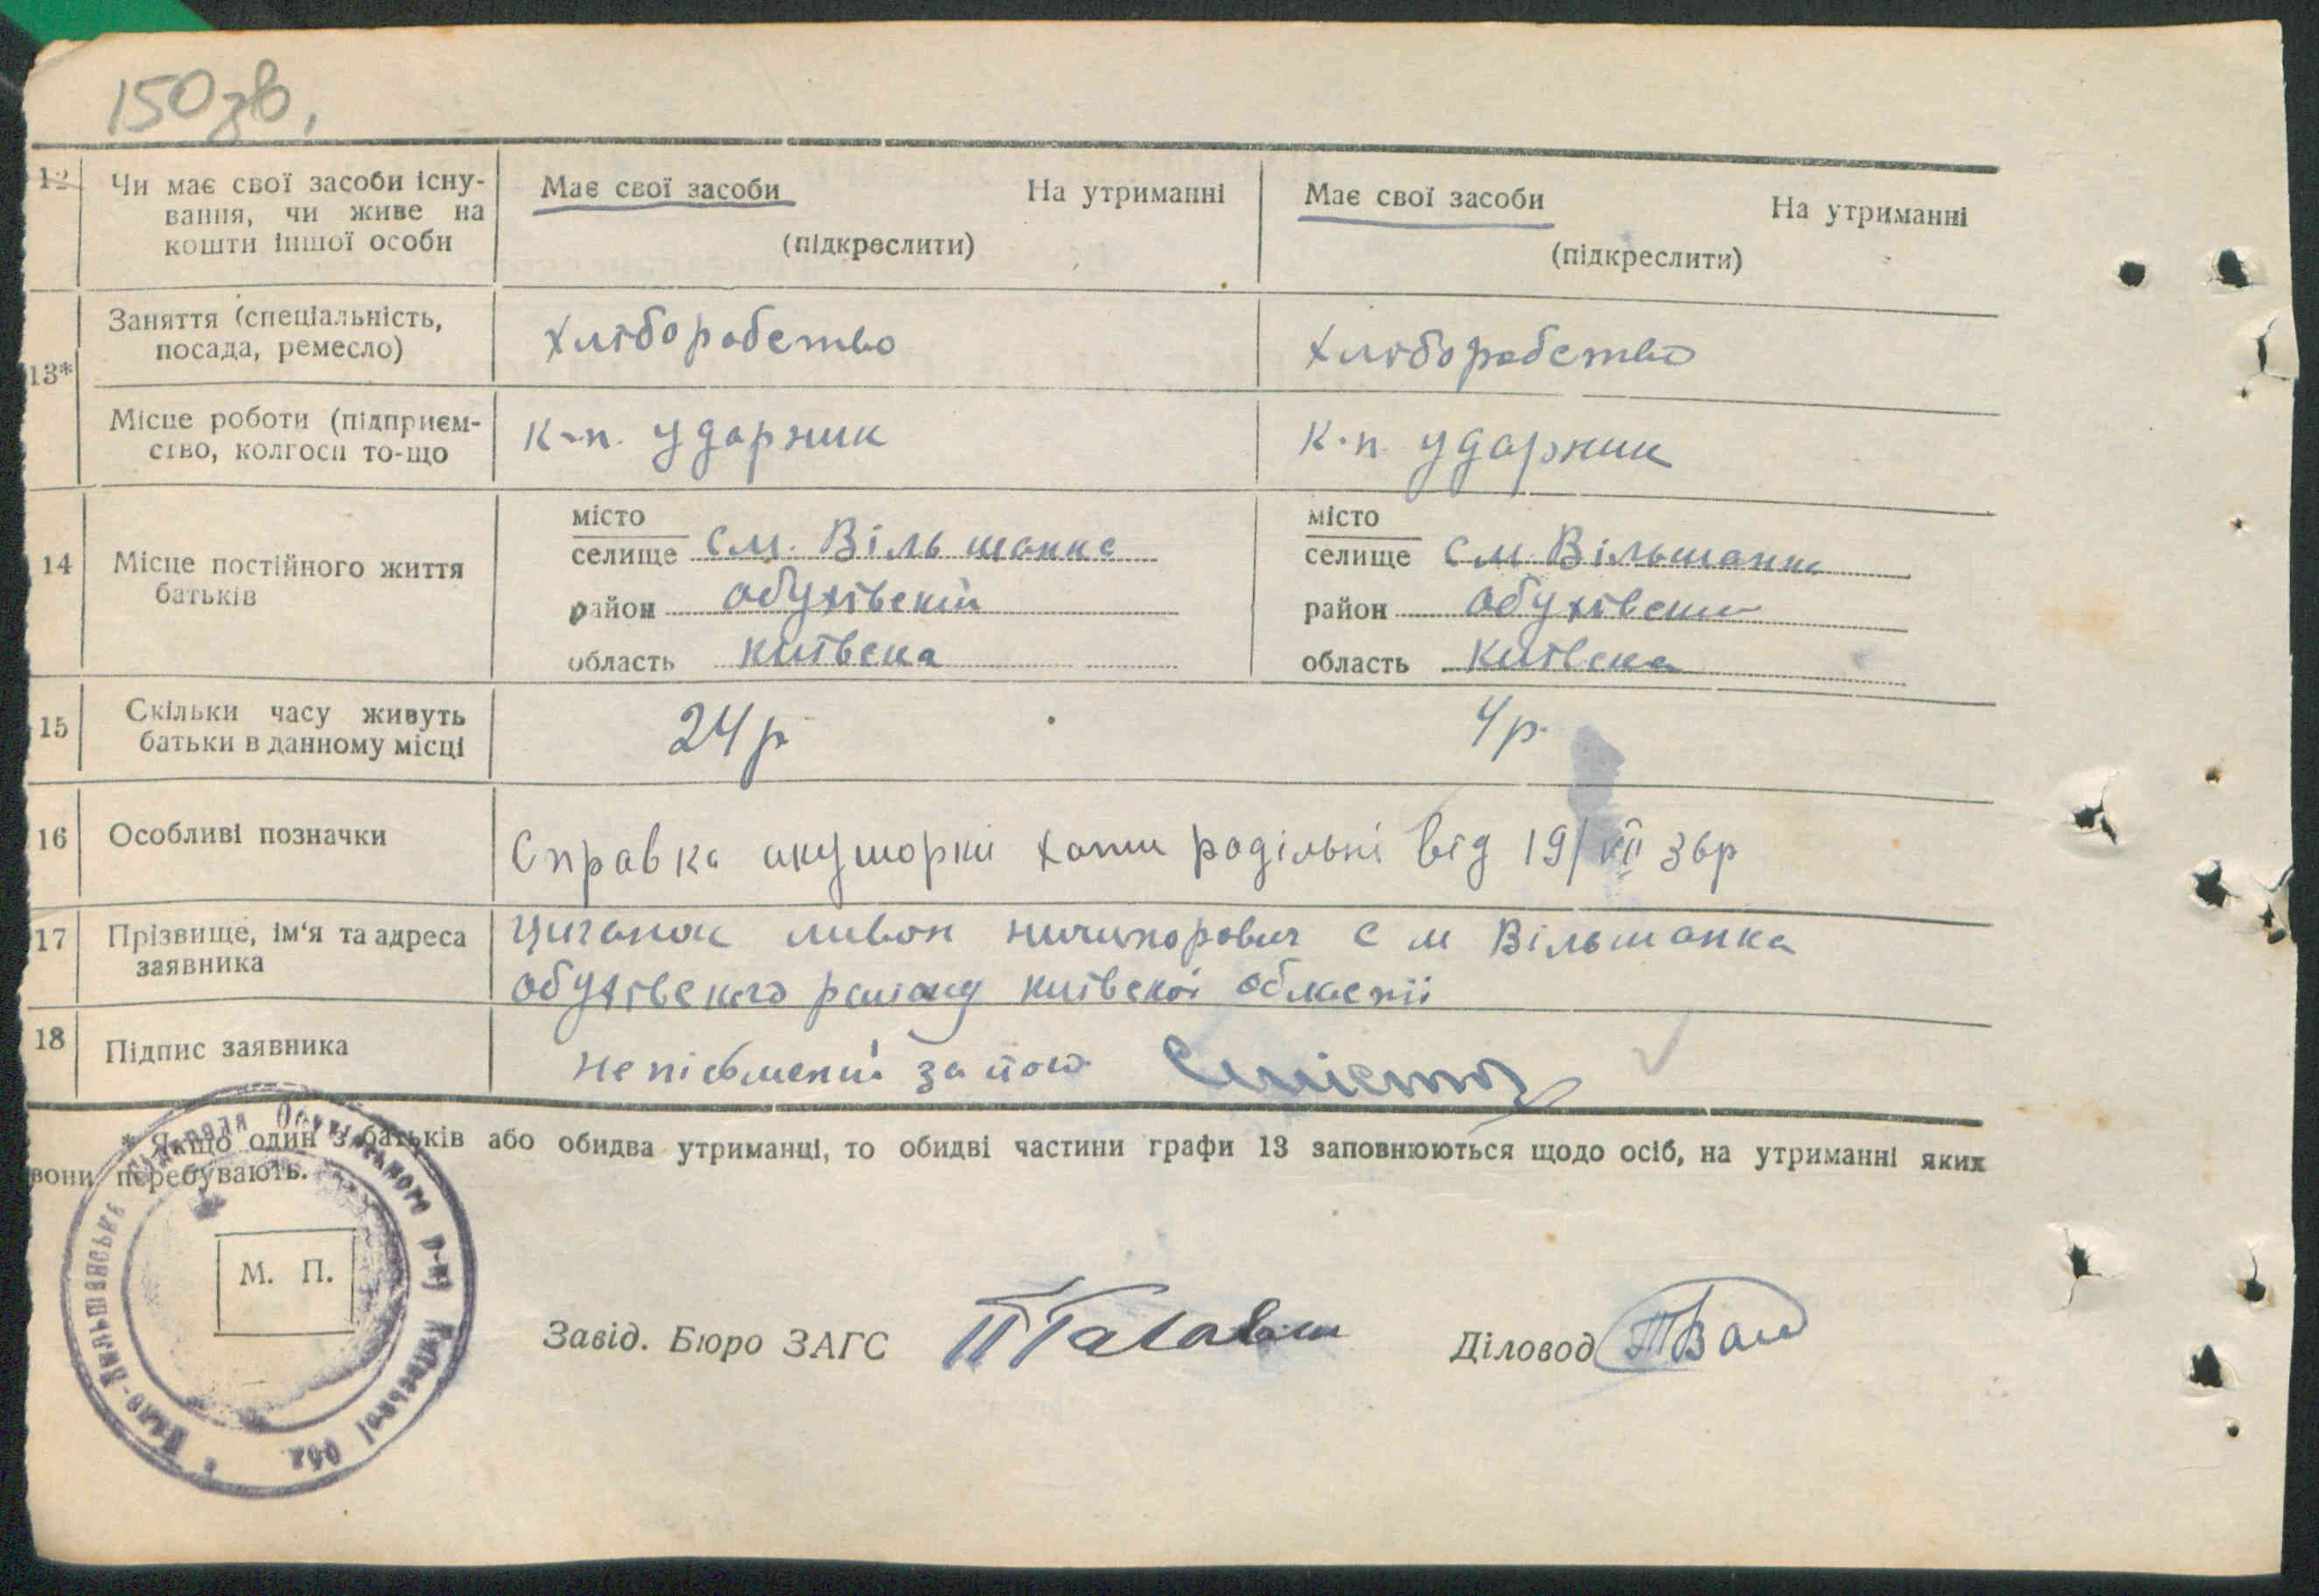 150зв.
12 Чи має свої засоби існу-
вання, чи живе на
кошти іншої особи
Має свої засоби На утриманні
(підкреслити)
Має свої засоби На утриманні
(підкреслити)
13*
Заняття (спеціальність,
посада, ремесло)
хліборобство
хліборобство
Місце роботи (підприєм-
ство, колгосп то-що
к-п. ударник
к-п. ударник
14 Місце постійного життя
батьків
місто
селище см. Вільшанка
район обухівский
область київска
місто
селище см. Вільшанка
район обухівский
область київска
15 Скільки часу живуть
батьки в данному місці
24 р
4 р.
16 Особливі позначки
Справка акушорки хати родільні від 19/VII 36р
17 Прізвище, ім'я та адреса
заявника
Циганок ливон ничипорович с м Вільшанка
обухівского району київскої области
18 Підпис заявника
неписьмений за його
* Якщо один з батьків або обидва утриманці, то обидві частини графи 13 заповнюються щодо осіб, на утриманні яких
вони перебувають.
М. П.
Завід. Бюро ЗАГС
Діловод